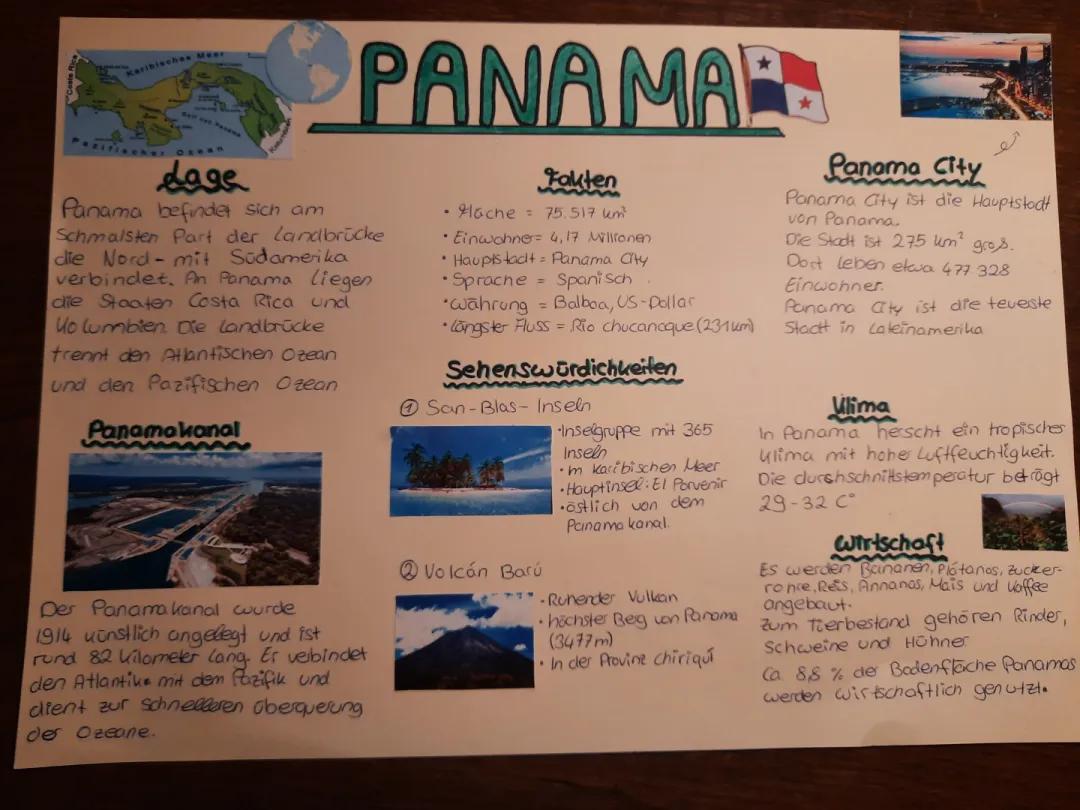 PANAMA
Costa Rica
Karibisches Meer
Golf von Panama
Pazifischer Ozean
Kolumbien
Lage
Panama befindet sich am
Schmalsten Part der Landbrücke
die Nord- mit Südamerika
verbindet. An Panama liegen
die Staaten Costa Rica und
Kolumbien. Die Landbrücke
trennt den Atlantischen Ozean
und den Pazifischen Ozean
Panamakanal
Der Panamakanal wurde
1914 künstlich angelegt und ist
rund 82 Kilometer lang. Er verbindet
den Atlantik mit dem Pazifik und
dient zur schnelleren überquerung
der Ozeane.
Fakten
• Fläche = 75.517 km²
• Einwohner = 4,17 Millionen
• Hauptstadt = Panama City
• Sprache = Spanisch
• Währung = Balboa, US-Dollar
• Längster Fluss = Río chucanaque (231 km)
Sehenswürdichkeiten
① San-Blas-Inseln
• Inselgruppe mit 365
Inseln
• im Karibischen Meer
• Hauptinsel: El Porvenir
• östlich von dem
Panamakanal.
② Volcán Barú
• Ruhender Vulkan
• höchster Berg von Panama
(3477m)
• In der Provinz Chiriquí
Panama City
Panama City ist die Hauptstadt
von Panama.
Die Stadt ist 275 km² groß.
Dort leben etwa 477 328
Einwohner.
Panama City ist die teuerste
Stadt in Lateinamerika
Klima
In Panama herscht ein tropisches
Klima mit hoher Luftfeuchtigkeit.
Die durchschnittstemperatur beträgt
29-32 C°
Wirtschaft
Es werden Bananen, Plátanos, Zucker-
rohre, Reis, Annanas, Mais und Kaffee
angebaut.
Zum Tierbestand gehören Rinder,
Schweine und Hühner
Ca. 8,8 % der Bodenfläche Panamas
werden wirtschaftlich genutzt.